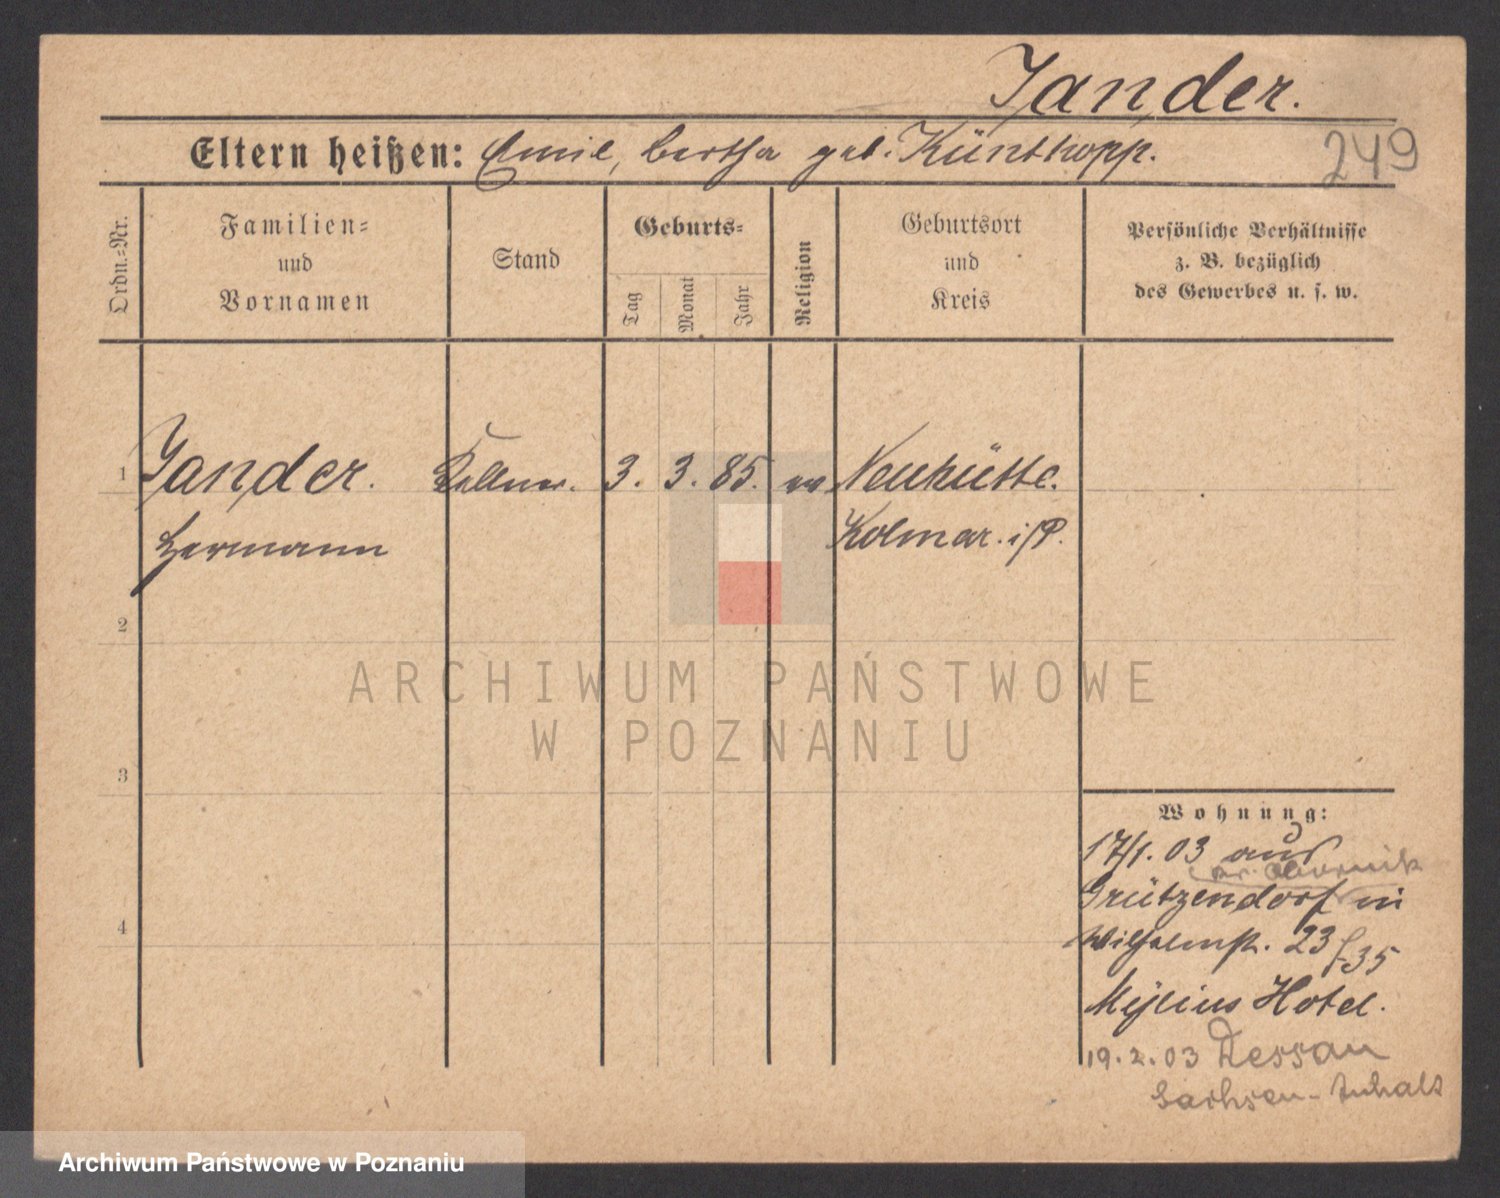 Jander.
Eltern heißen: Emil, Bertha geb. Künthopp.
249
Ordn.-Nr.
Familien-
und
Vornamen
Stand
Geburts-
Tag
Monat
Jahr
Religion
Geburtsort
und
Kreis
Persönliche Verhältnisse
z. B. bezüglich
des Gewerbes u. s. w.
1 Jander. Kellner. 3. 3. 85. ev Neuhütte.
Hermann Kolmar. i/P.
2
ARCHIWUM PAŃSTWOWE
W POZNANIU
3
Wohnung:
17/1. 03 aus
Kr. Obornik
Grützendorf in
4
Wilhelmst. 23
35
Mylius Hotel.
19. 2. 03 Dessau
Sachsen-Anhalt
Archiwum Państwowe w Poznaniu